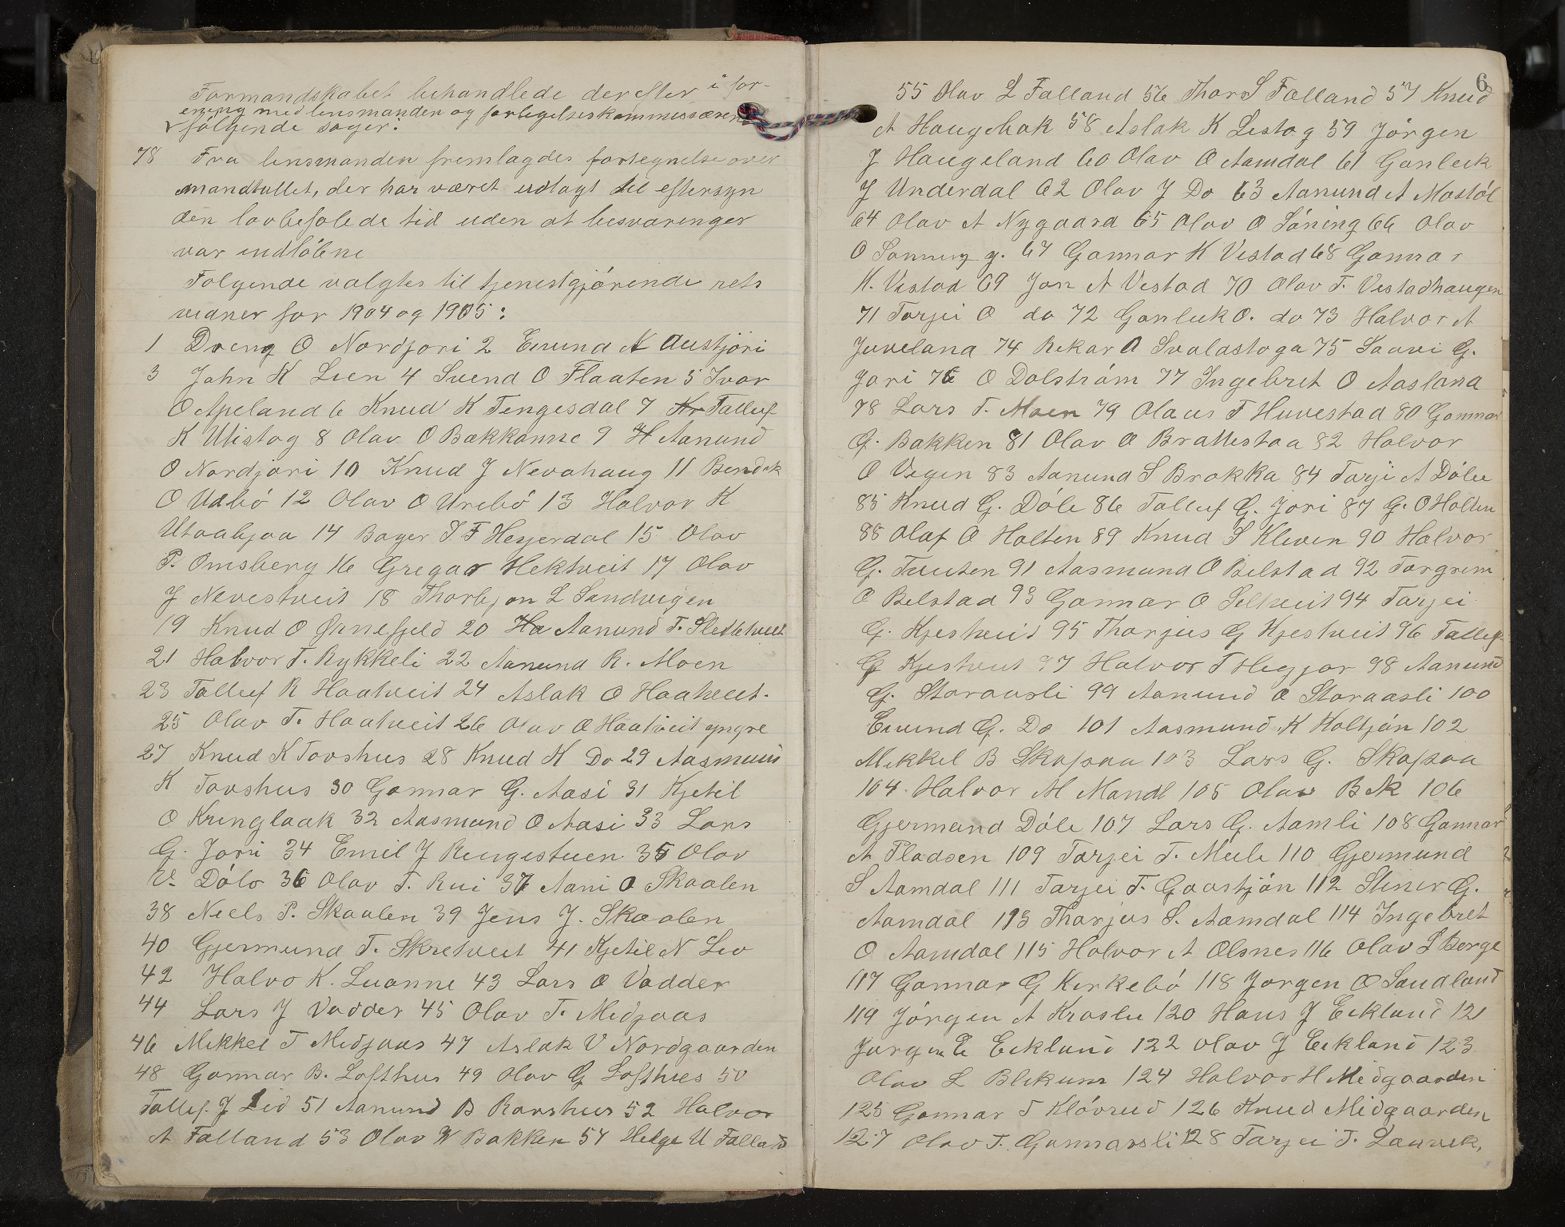 Formandskabet behandlede derefter i for-
ening med lensmanden og forligelseskommissæren
følgende sager:
78 Fra lensmanden fremlagdes fortegnelse over
mandtallet, der har været udlagt til eftersyn
den lovbefalede tid uden at besværinger
var indløbne
Følgende valgtes til tjenestgjørende rets
vidner for 1904 og 1905:
1 Dreng O Nordjori 2 Eivind K Austjori
3 John K Lien 4 Svend O Flaaten 5 Ivar
O Apeland 6 Knud K Tengesdal 7 Tallef
K Utistog 8 Olav O Bakkanne 9 H Aanund
O Nordjori 10 Knud J Nevahaug 11 Bendik
O Udbø 12 Olav O Urebø 13 Halvor K
Utaabjaa 14 T F Hegerdal 15 Olav
P. Omsberg 16 Gregar Hektveit 17 Olav
J Nevestveit 18 Thorbjøn L Sandvigen
19 Knud O Ørnefjeld 20 Aanund T. Slettetveit
21 Halvor T. Rykkeli 22 Aanund R. Moen
23 Tallef R Haatveit 24 Aslak O Haatveit.
25 Olav T. Haatveit 26 Olav O Haatveit yngre
27 Knud K Tovshus 28 Knud K Do 29 Aasmund
K Tovshus 30 Gonnar G. Aasi 31 Kjetil
O Kringlaak 32 Aasmund O Aasi 33 Lars
G. Jori 34 Emil J Ringestuen 35 Olav
V. Dølo 36 Olav T. Rui 37 Aani O Skaalen
38 Neels P. Skaalen 39 Jens J. Skaalen
40 Gjermund T. Skretveit 41 Kjetil N Lio
42 Halvo K. Luanne 43 Lars O Vadder
44 Lars J Vadder 45 Olav T. Midjaas
46 Mikkel T Midjaas 47 Aslak V Nordgaarden
48 Gonnar B. Lofthus 49 Olav G Lofthus 50
Tallef. J Lid 51 Aanund B Ravshus 52 Halvor
A Falland 53 Olav W Bakken 54 Helge U Falland
6
55 Olav L Falland 56 Thor S Falland 57 Knud
A Haugebak 58 Aslak K Listog 59 Jørgen
J Haugeland 60 Olav O Aamdal 61 Gonleik
J Underdal 62 Olav J Do 63 Aanund A Mostøl
64 Olav A Nygaard 65 Olav O Søning 66 Olav
O Sønning y. 67 Gonnar K Vistad 68 Gonnar
K. Vistad 69 Jon A Vistad 70 Olav T. Vistadhaugen
71 Tarjei O do 72 Gonleik O. do 73 Halvor A
Juveland 74 Rekar A Svalastoga 75 Saavi G.
Jori 76 O Dolstrøm 77 Ingebret O Aasland
78 Lars T. Moen 79 Olaus T Huvestad 80 Gonnar
G. Bakken 81 Olav O Brattestaa 82 Halvor
O Vegen 83 Aanund S Brokka 84 Tarjei A Døle
85 Knud G. Døle 86 Tallef G. Jori 87 G. O Holten
88 Olaf O Holten 89 Knud S Kleven 90 Halvor
G. Tveiten 91 Aasmund O Bilstad 92 Torgrim
O Bilstad 93 Gonnar O Seltveit 94 Tarjei
G. Kjestveit 95 Tharjus G Kjestveit 96 Tallef
G Kjestveit 97 Halvor T Hegjar 98 Aanund
G. Storaasli 99 Aanund O Storaasli 100
Eivind G. Do 101 Aasmund K Holtjøn 102
Mikkel B Skafsaa 103 Lars G. Skafsaa
104. Halvor M Mandt 105 Olav B Ak 106
Gjermund Døle 107 Lars G. Aamli 108 Gonnar
A Pladsen 109 Tarjei T. Meile 110 Gjermund
S Aamdal 111 Tarjei T. Gaastjøn 112 Stiner G.
Aamdal 113 Tharjus S. Aamdal 114 Ingebret
O Aamdal 115 Halvor A Olsnes 116 Olav L Berge
117 Gonnar G Kirkebø 118 Jørgen O Sandland
119 Jørgen A Kroslie 120 Hans J Eikland 121
Jørgen E Eikland 122 Olav J Eikland 123
Olav L Blikum 124 Halvor H Midgaarden
125 Gonnar T Kløvrud 126 Knud Midgaarden
127 Olav T. Gonnarsli 128 Tarjei T. Lauvek,